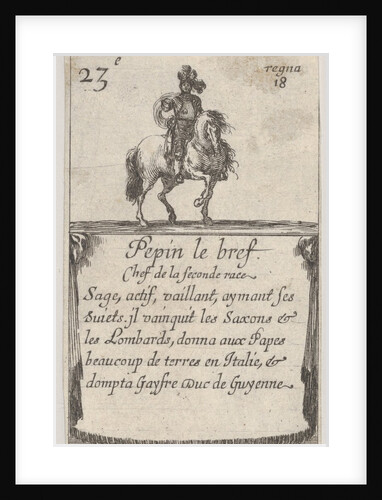 23e
regna
18
Pepin le bref.
Chef de la seconde race
Sage, actif, vaillant, aymant ses
suiets. jl vainquit les Saxons &
les Lombards, donna aux Papes
beaucoup de terres en Italie, &
dompta Gayfre Duc de Guyenne